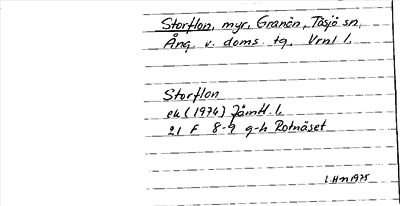 Storflon, myr, Granön, Tåsjö sn,
Ång. v. doms. tg. Vrnl l.
Storflon
ek (1974) Jämtl. l.
21 F 8-9 g-h Rotnäset
L.Hm 1975